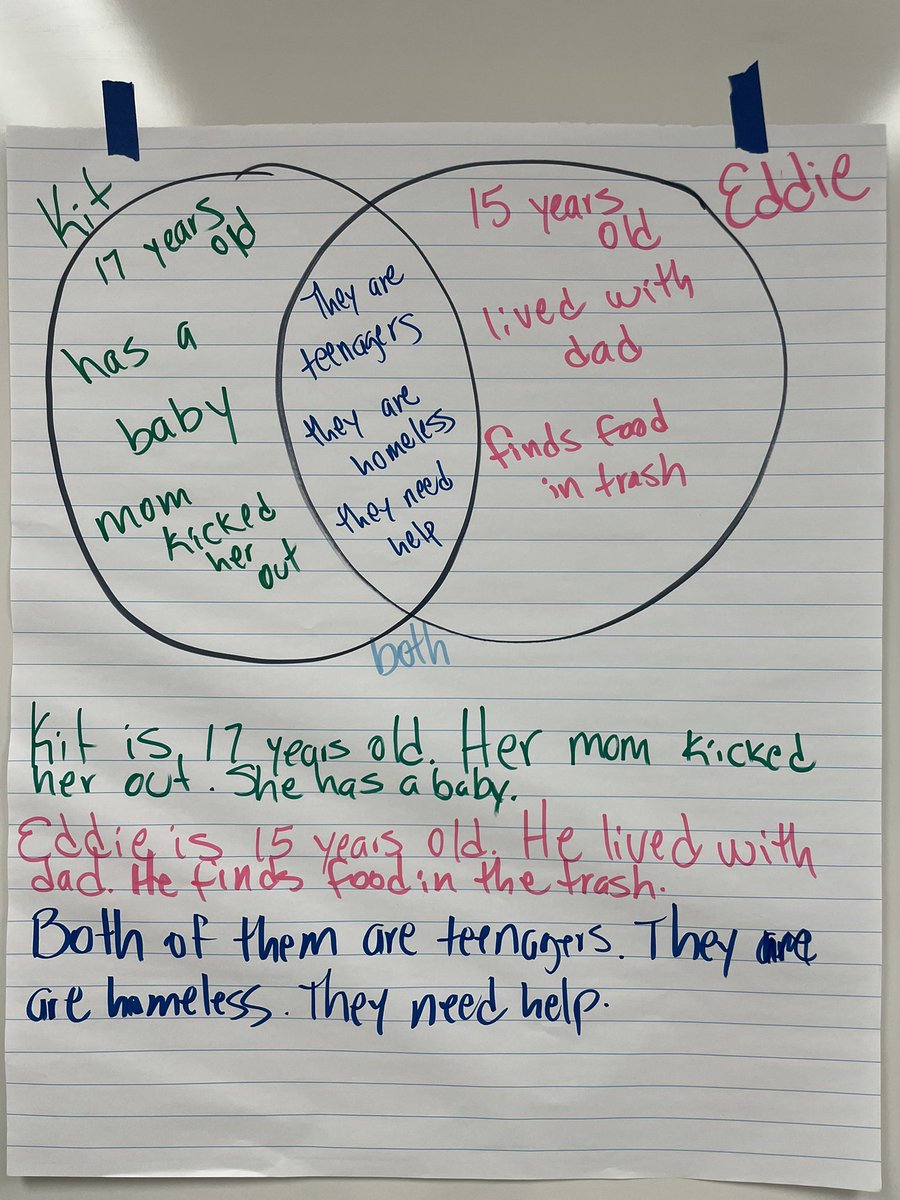 Kit
17 years
old
has a
baby
mom
kicked
her
out
They are
teenagers
they are
homeless
they need
help
both
Eddie
15 years
old
lived with
dad
finds food
in trash
Kit is 17 years old. Her mom kicked
her out. She has a baby.
Eddie is 15 years old. He lived with
dad. He finds food in the trash.
Both of them are teenagers. They are
are homeless. They need help.